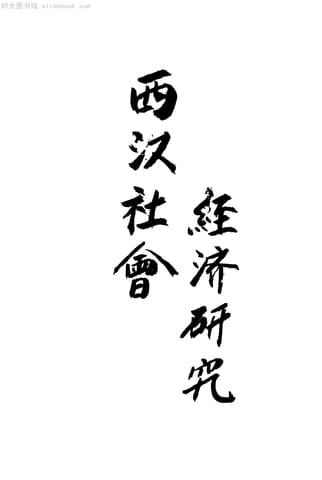 时光图书馆 etimebook.com
西汉社會
經济研究